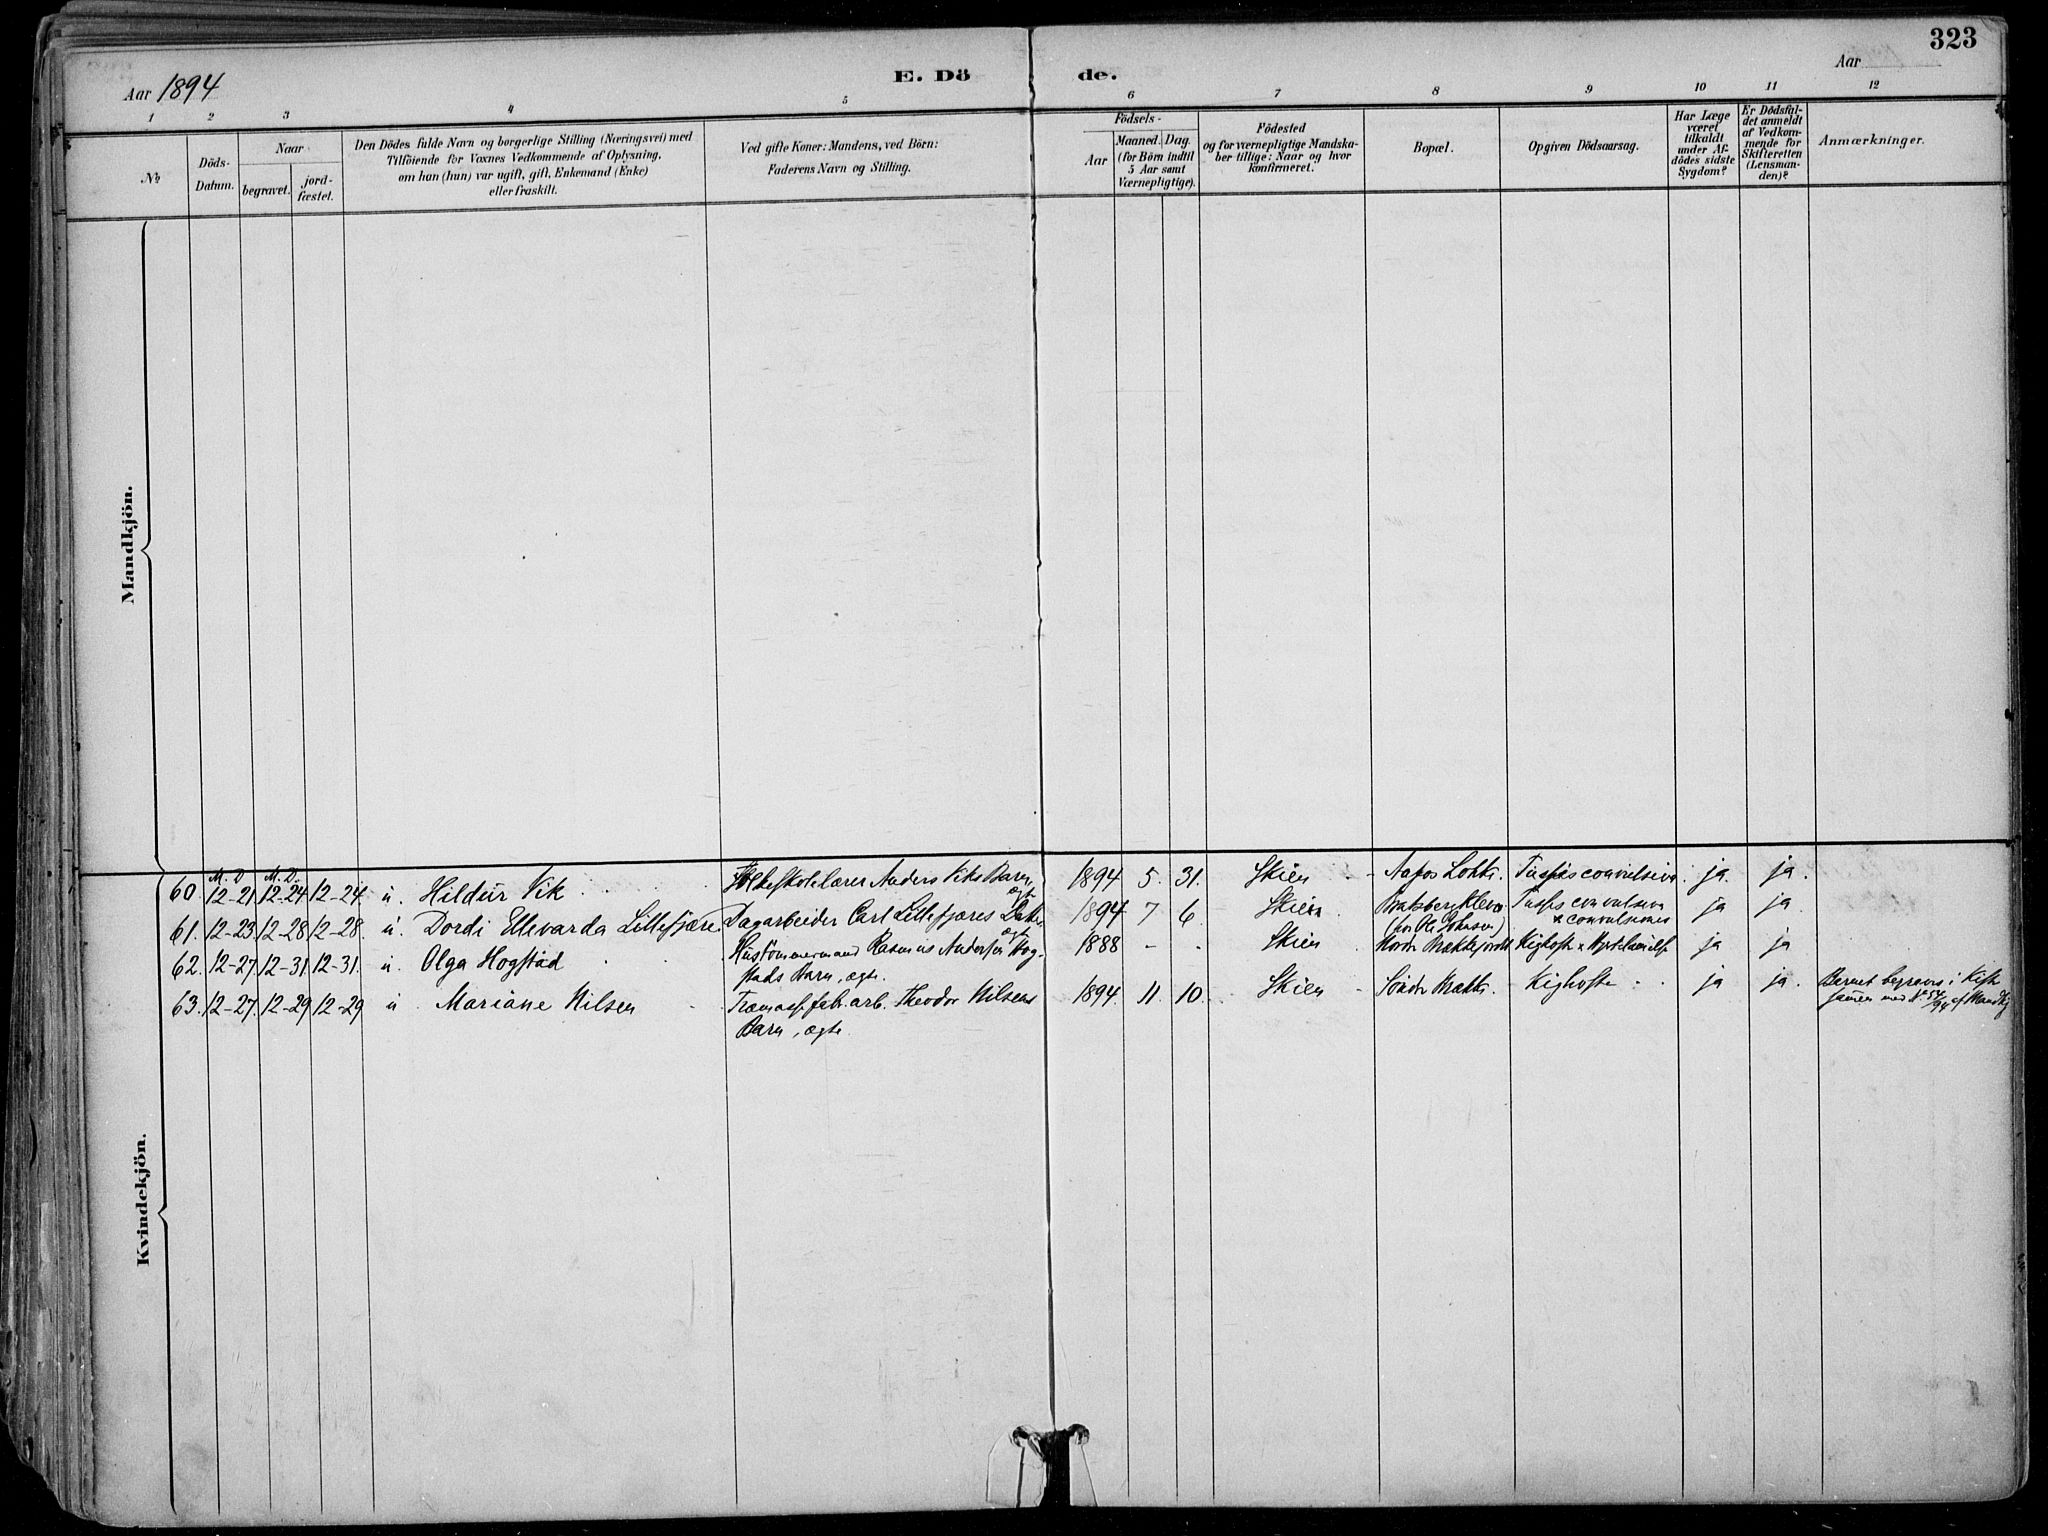 323
Aar 1894
E. Dö de.
Aar
1 2 3 4 5 6 7 8 9 10 11 12
№
Döds-
Datum.
Naar
begravet.
jord-
fæstet.
Den Dödes fulde Navn og borgerlige Stilling (Næringsvei) med
Tilföiende for Voxnes Vedkommende af Oplysning,
om han (hun) var ugift, gift, Enkemand (Enke)
eller fraskilt.
Ved gifte Koner: Mandens, ved Börn:
Faderens Navn og Stilling.
Födsels-
Aar
Maaned. Dag.
(for Börn indtil
5 Aar samt
Værnepligtige).
Födested
og for værnepligtige Mandska-
ber tillige: Naar og hvor
konfirmeret.
Bopæl.
Opgiven Dödsaarsag.
Har Læge
været
tilkaldt
under Af-
dödes sidste
Sygdom?
Er Dödsfal-
det anmeldt
af Vedkom-
mende for
Skifteretten
(Lensman-
den)?
Anmærkninger.
Mandkjön.
Kvindekjön.
M. D M. D.
60. 12-21. 12-24 12-24. u. Hildur Vik Folkeskolelærer Anders Viks Barn, ægte 1894 5. 31. Skien Aafos Lokke. Tussis convulsiva. ja. ja.
61. 12-23. 12-28 12-28. u. Dordi Ellevarda Lillefjære. Dagarbeider Carl Lillefjæres Datter ægte 1894 7 6. Skien Bratsbergkleva Tussis convulsiva ja ja.
(hos Ole Johnsen) & convulsiones
62. 12-27. 12-31. 12-31. u. Olga Hogstad Hustømmermand Rasmus Anderssen Hog- 1888 - - Skien Nordr Brække Kighoste & ja ja
stads Barn, ægte.
63. 12-27. 12-29 12-29 u Mariane Nilsen Træmassefabr.arb. Theodor Nilsens 1894. 11. 10. Skien Søndr Brække. Kighoste ja ja. Barnet begraves i Kiste
Barn, ægte. sammen med № 54/94 af Mandkj